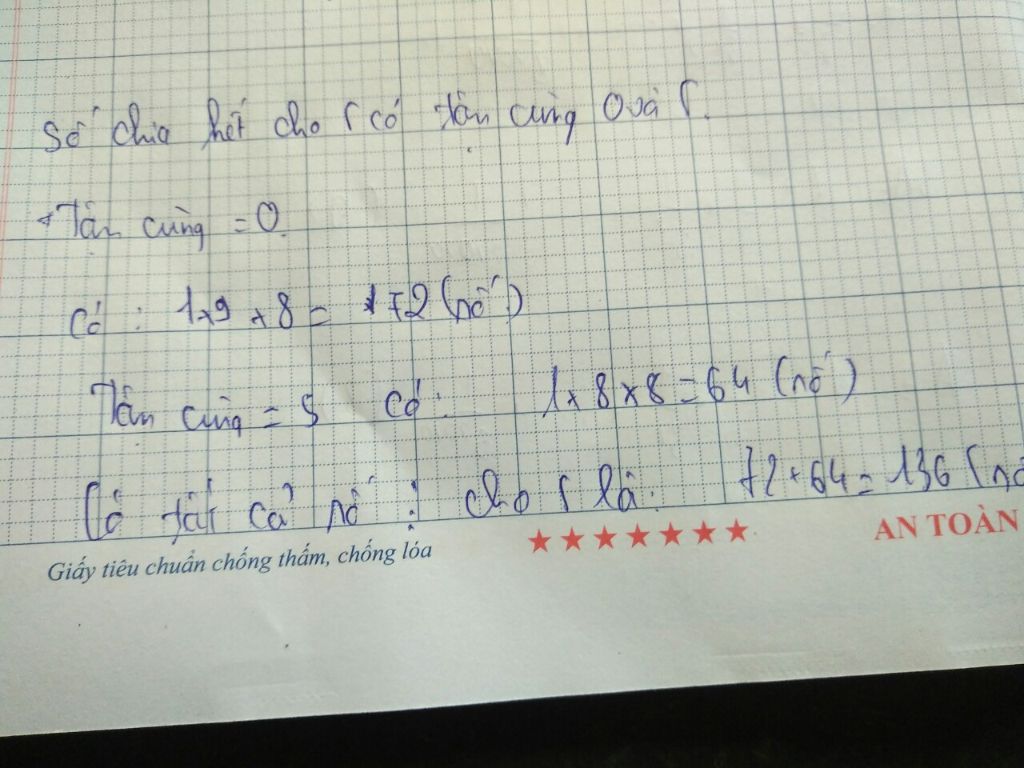 Số chia hết cho 5 có tận cùng 0 và 5.
+ Tận cùng = 0.
Có : 1 x 9 x 8 = 72 (số)
Tận cùng = 5 Có : 1 x 8 x 8 = 64 (số)
Có tất cả số : cho 5 là : 72 + 64 = 136 (số
Giấy tiêu chuẩn chống thấm, chống lóa ★★★★★★★ AN TOÀN